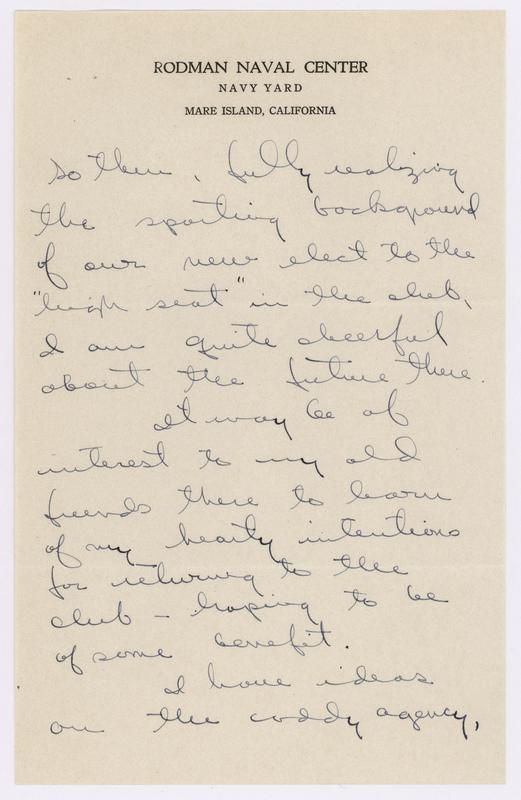 RODMAN NAVAL CENTER
NAVY YARD
MARE ISLAND, CALIFORNIA
So then, fully realizing
the sporting background
of our new elect to the
"high seat" in the club,
I am quite cheerful
about the future there.
It may be of
interest to my old
friends there to learn
of my hearty intentions
for returning to the
club – hoping to be
of some benefit.
I have ideas
on the caddy agency,